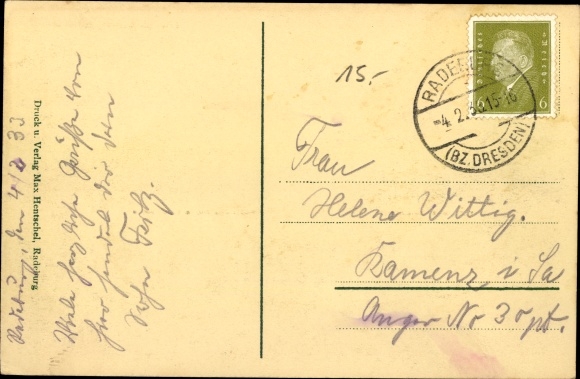 Radeburg, den 4/2 33
Viele herzliche Grüße von
hier sendet dir dein
Sohn Fritz.
Druck u. Verlag Max Hentschel, Radeburg
15.-
DEUTSCHES REICH
6 6
RADEBURG
-4.2.33.15-16
(BZ. DRESDEN)
Frau
Helene Wittig.
Kamenz i Sa
Anger No 30 pt.